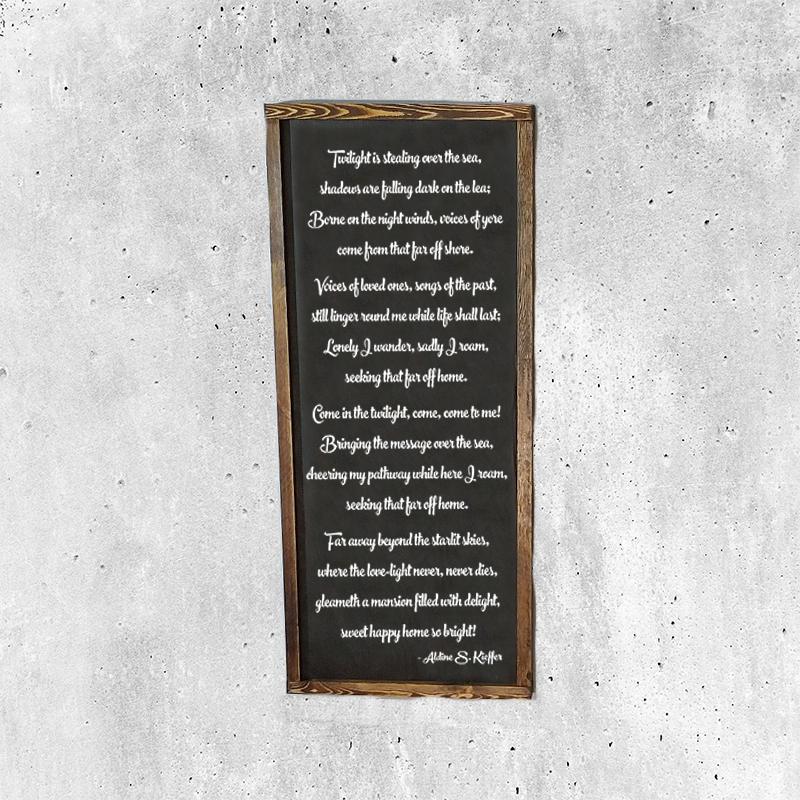 Twilight is stealing over the sea,
shadows are falling dark on the lea;
Borne on the night winds, voices of yore
come from that far off shore.
Voices of loved ones, songs of the past,
still linger round me while life shall last;
Lonely I wander, sadly I roam,
seeking that far off home.
Come in the twilight, come, come to me!
Bringing the message over the sea,
cheering my pathway while here I roam,
seeking that far off home.
Far away beyond the starlit skies,
where the love-light never, never dies,
gleameth a mansion filled with delight,
sweet happy home so bright!
- Aldine S. Kieffer